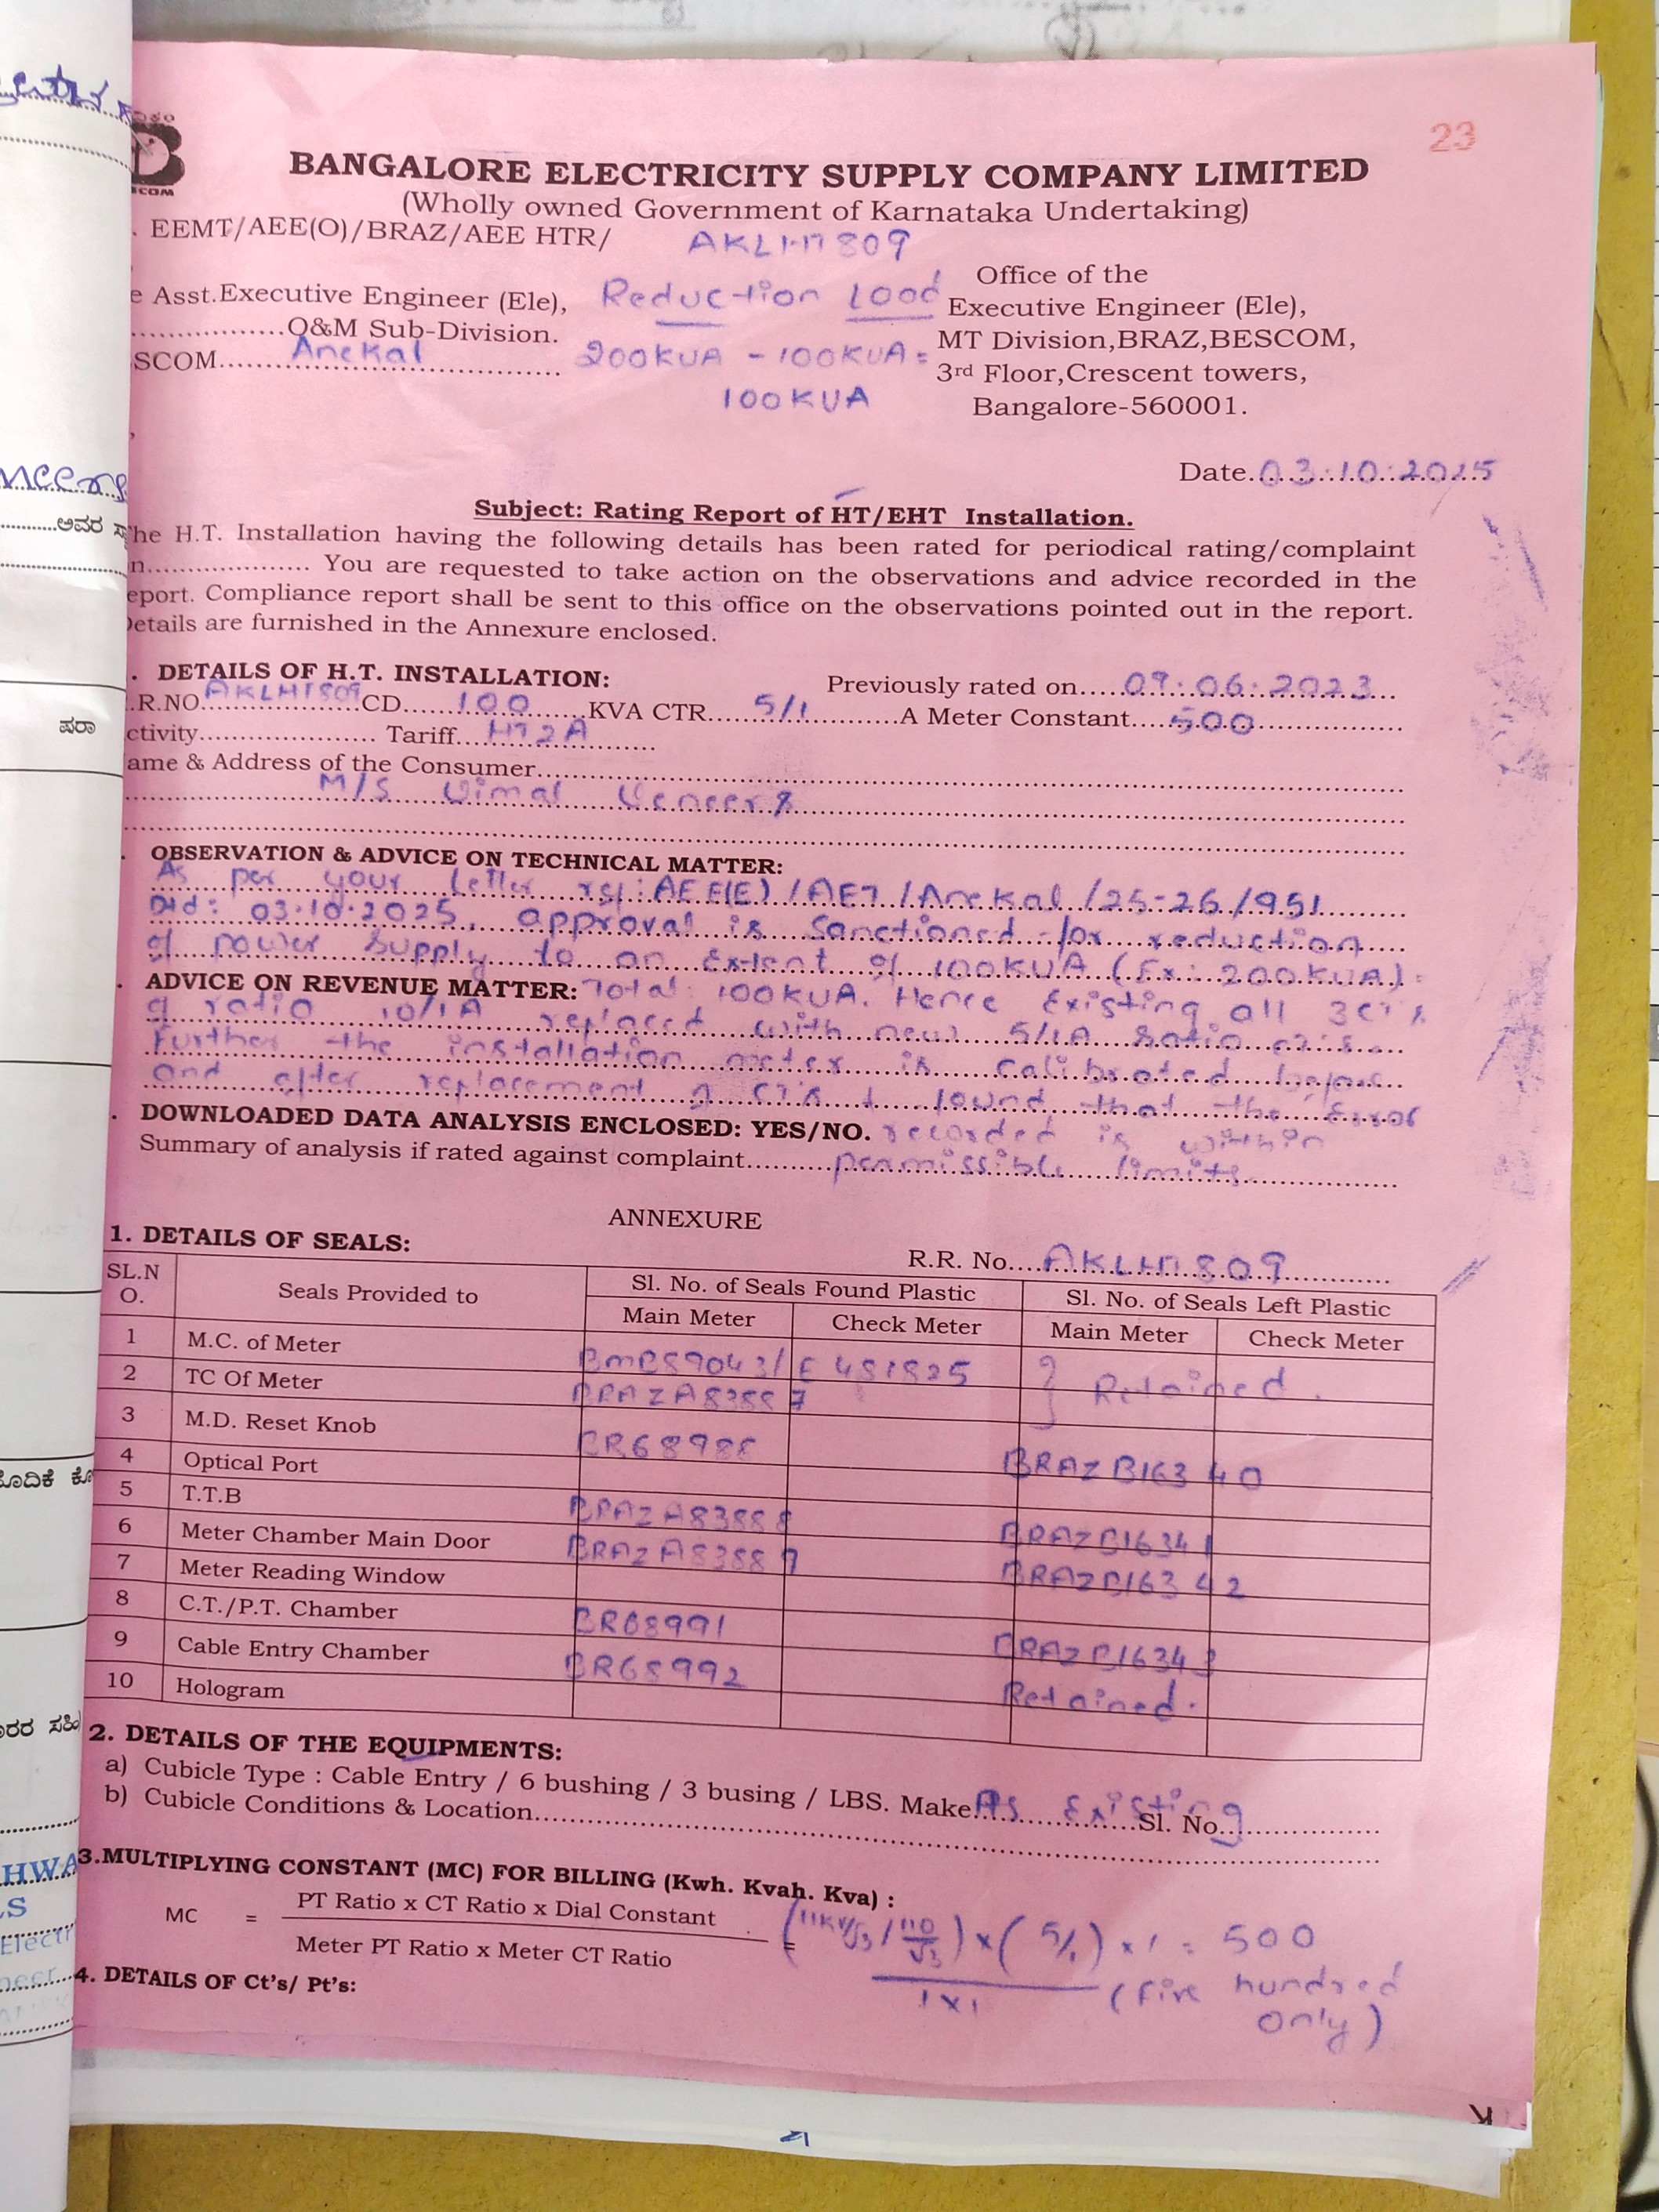 23
BANGALORE ELECTRICITY SUPPLY COMPANY LIMITED
(Wholly owned Government of Karnataka Undertaking)
. EEMT/AEE(O)/BRAZ/AEE HTR/ AKLHT809
e Asst.Executive Engineer (Ele),
..................O&M Sub-Division.
SCOM....Anekal....
Reduction Load
200KVA - 100KVA =
100KVA
Office of the
Executive Engineer (Ele),
MT Division,BRAZ,BESCOM,
3rd Floor,Crescent towers,
Bangalore-560001.
Date..03.10.2025
Subject: Rating Report of HT/EHT Installation.
he H.T. Installation having the following details has been rated for periodical rating/complaint
n.................... You are requested to take action on the observations and advice recorded in the
eport. Compliance report shall be sent to this office on the observations pointed out in the report.
etails are furnished in the Annexure enclosed.
. DETAILS OF H.T. INSTALLATION:
Previously rated on.....09.06.2023...
.R.NO AKLHT809 CD......100......KVA CTR.....5/1.........A Meter Constant....500....
ctivity..................... Tariff...HT2A.......
ame & Address of the Consumer....
M/S Vimal Veneers
. OBSERVATION & ADVICE ON TECHNICAL MATTER:
As per your letter ref: AEE(E) /AET /Anekal /25-26 /951
Dtd: 03.10.2025, approval is Sanctioned for reduction
of power Supply to an Extent of 100KVA (Ex: 200KVA) =
. ADVICE ON REVENUE MATTER: Total: 100KVA. Hence Existing all 3CT's
of ratio 10/1A replaced with new 5/1A Ratio CT's.
Further the installation meter is Calibrated before
and after replacement of CT's & found that the Error
. DOWNLOADED DATA ANALYSIS ENCLOSED: YES/NO. recorded is within
Summary of analysis if rated against complaint.........permissible limits.
ANNEXURE
1. DETAILS OF SEALS:
R.R. No....AKLHT809....
SL.N O. Seals Provided to Sl. No. of Seals Found Plastic Sl. No. of Seals Left Plastic
Main Meter Check Meter Main Meter Check Meter
1 M.C. of Meter
2 TC Of Meter BRAZA83887 } Retained.
3 M.D. Reset Knob
4 Optical Port BRAZB16340
5 T.T.B
6 Meter Chamber Main Door BRAZA83888 BRAZB16341
7 Meter Reading Window BRAZA83889 BRAZB16342
8 C.T./P.T. Chamber
9 Cable Entry Chamber BR68991 BRAZB16343
10 Hologram BR68992 Retained.
2. DETAILS OF THE EQUIPMENTS:
a) Cubicle Type : Cable Entry / 6 bushing / 3 busing / LBS. Make As Existing Sl. No...
b) Cubicle Conditions & Location....
3.MULTIPLYING CONSTANT (MC) FOR BILLING (Kwh. Kvah. Kva) :
MC = PT Ratio x CT Ratio x Dial Constant
Meter PT Ratio x Meter CT Ratio
= (11KV/√3 / 110/√3) x (5/1) x 1 = 500
1x1 (Five hundred
only)
4. DETAILS OF Ct's/ Pt's: